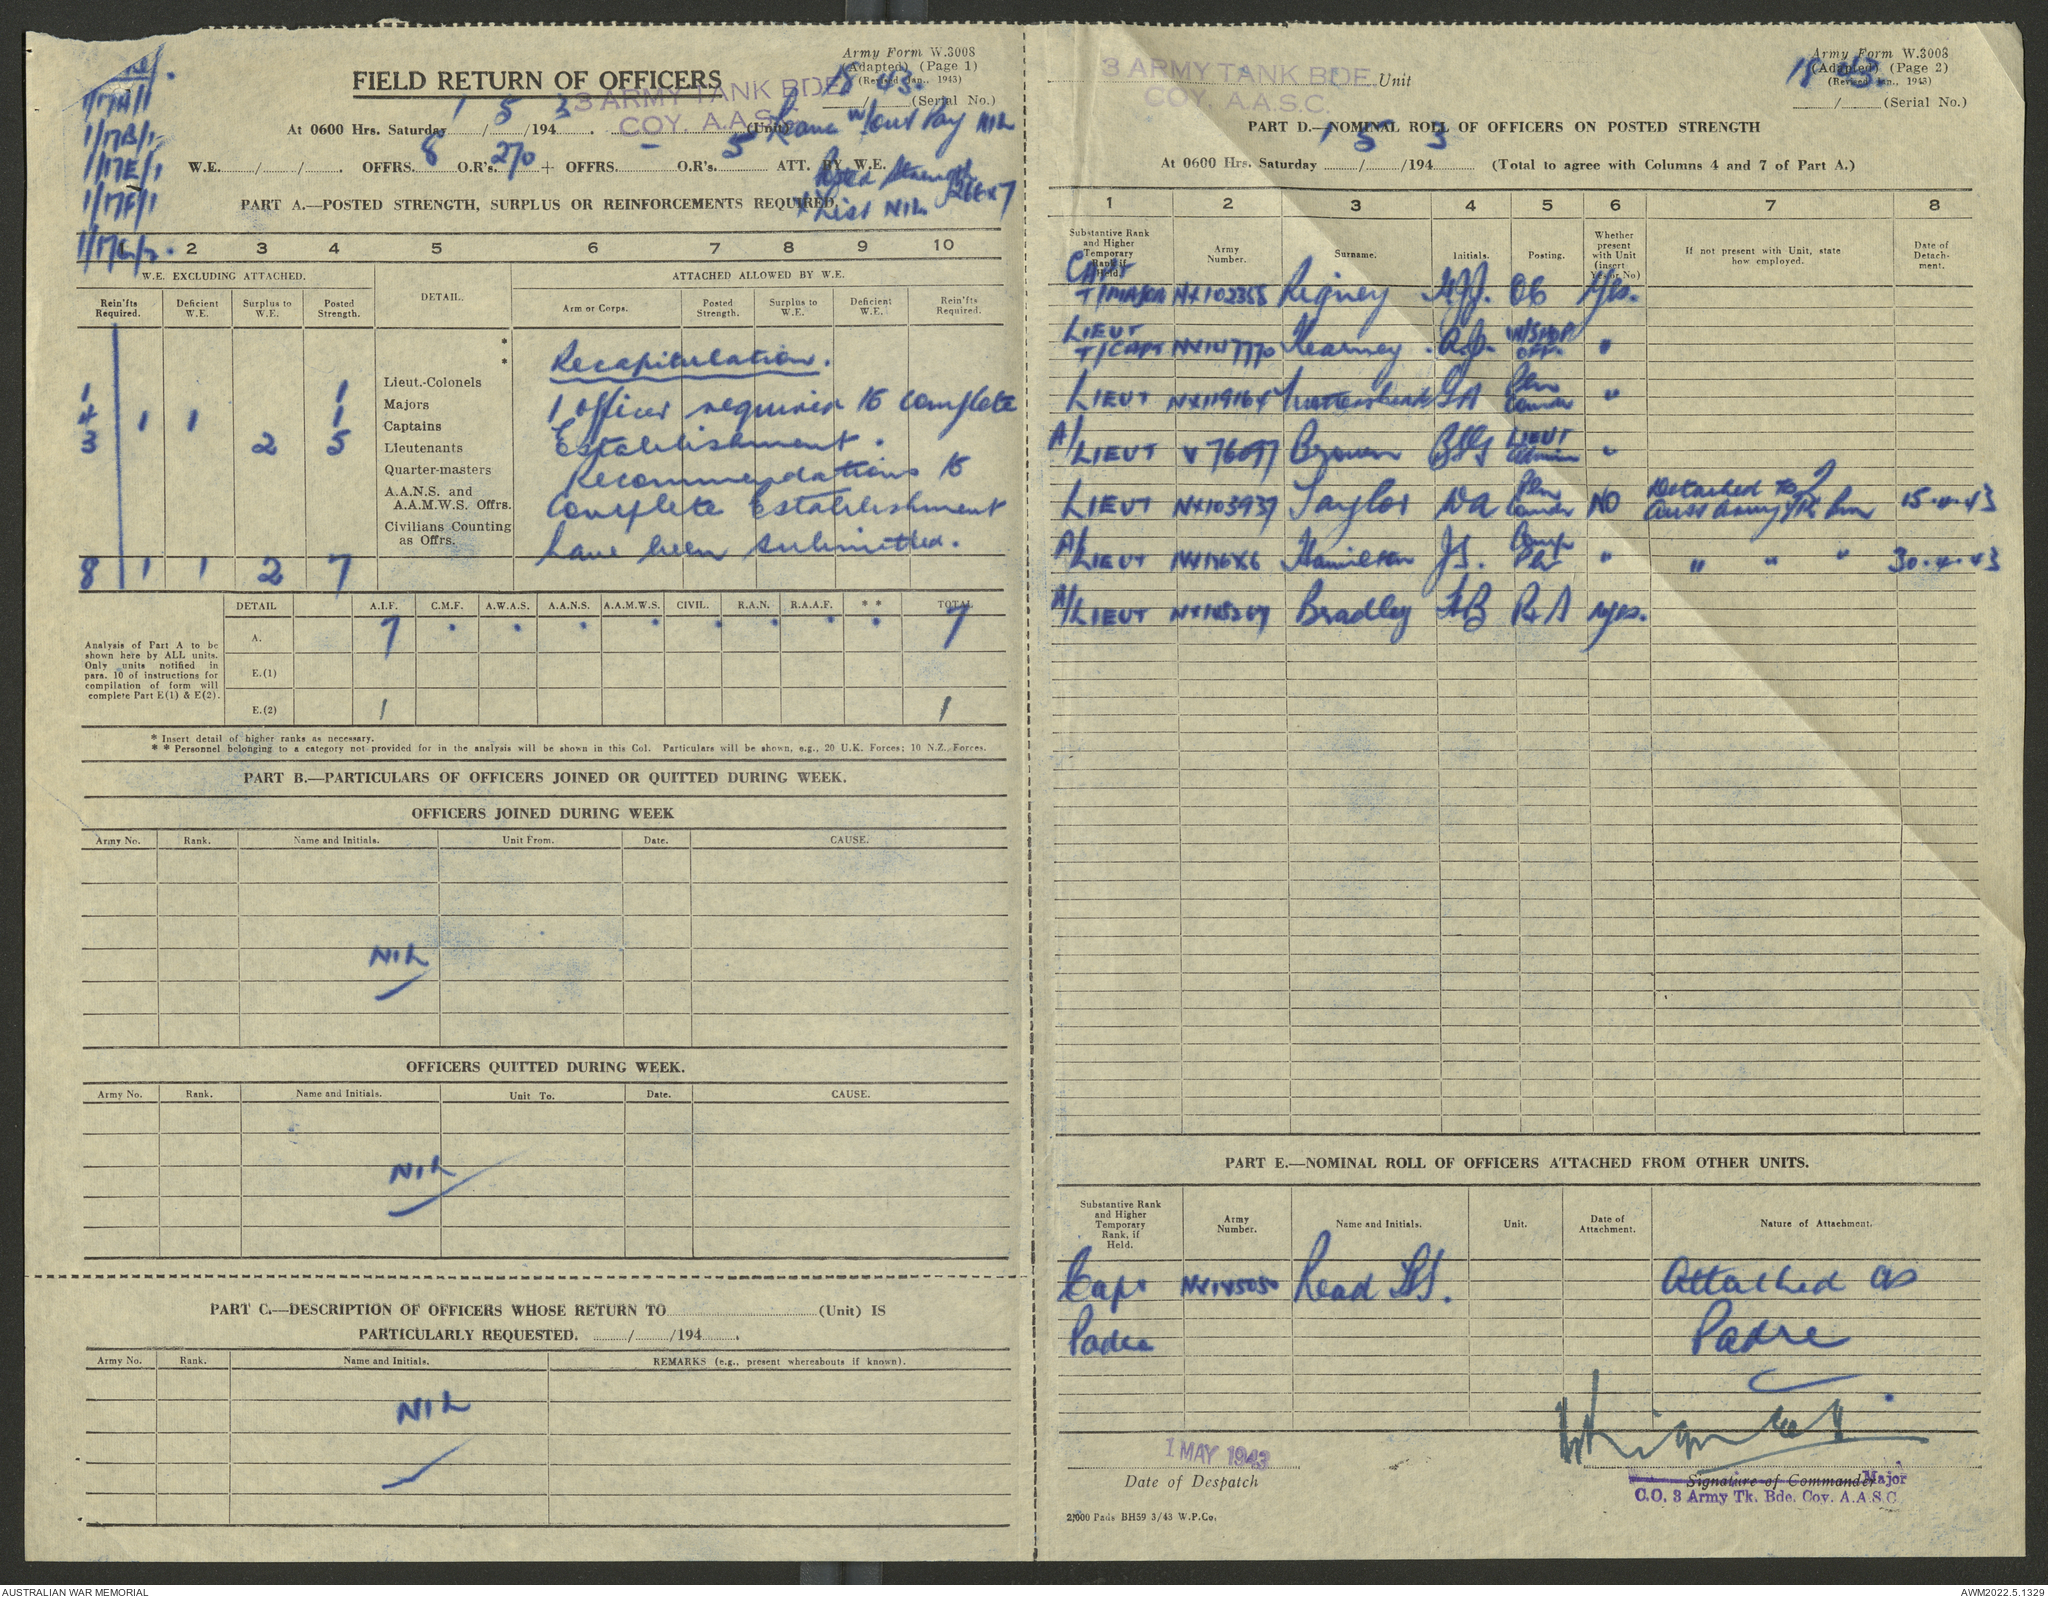 Army Form W.3008
(Adapted) (Page 1)
(Revised Jan., 1943)
18 43.
___/___(Serial No.)
1/17A/1
1/17B/1
1/17E/1
1/17F/1
FIELD RETURN OF OFFICERS
3 ARMY TANK BDE.
COY. A.A.S.C.
At 0600 Hrs. Saturday 1/5/1943. (Unit)
Leave w/out Pay NIL
W.E.___/___/___. OFFRS. 8 O.R's. 270 + OFFRS. - O.R's. 5 ATT. BY W.E.
Posted Strength 266 x 7
X List NIL
PART A.—POSTED STRENGTH, SURPLUS OR REINFORCEMENTS REQUIRED.
1 2 3 4 5 6 7 8 9 10
W.E. EXCLUDING ATTACHED. DETAIL. ATTACHED ALLOWED BY W.E.
Rein'fts Required. Deficient W.E. Surplus to W.E. Posted Strength. Arm or Corps. Posted Strength. Surplus to W.E. Deficient W.E. Rein'fts Required.
*
*
Recapitulation.
Lieut.-Colonels
1 1 Majors 1 officer required to complete
4 1 1 1 Captains
3 2 5 Lieutenants Establishment.
Quarter-masters Recommendations to
A.A.N.S. and
A.A.M.W.S. Offrs. complete Establishment
Civilians Counting
as Offrs. have been submitted.
8 1 1 2 7
DETAIL A.I.F. C.M.F. A.W.A.S. A.A.N.S. A.A.M.W.S. CIVIL. R.A.N. R.A.A.F. * * TOTAL
Analysis of Part A to be
shown here by ALL units.
Only units notified in
para. 10 of instructions for
compilation of form will
complete Part E(1) & E(2).
A. 7 . . . . . . . . 7
E.(1)
E.(2) 1 1
* Insert detail of higher ranks as necessary.
* * Personnel belonging to a category not provided for in the analysis will be shown in this Col. Particulars will be shown, e.g., 20 U.K. Forces; 10 N.Z. Forces.
PART B.—PARTICULARS OF OFFICERS JOINED OR QUITTED DURING WEEK.
OFFICERS JOINED DURING WEEK
Army No. Rank. Name and Initials. Unit From. Date. CAUSE.
NIL
OFFICERS QUITTED DURING WEEK.
Army No. Rank. Name and Initials. Unit To. Date. CAUSE.
NIL
PART C.—DESCRIPTION OF OFFICERS WHOSE RETURN TO (Unit) IS
PARTICULARLY REQUESTED. ___/___/194___.
Army No. Rank. Name and Initials. REMARKS (e.g., present whereabouts if known).
NIL
Army Form W.3008
(Adapted) (Page 2)
(Revised Jan., 1943)
18 43.
___/___(Serial No.)
3 ARMY TANK BDE. Unit
COY. A.A.S.C.
PART D.—NOMINAL ROLL OF OFFICERS ON POSTED STRENGTH
At 0600 Hrs. Saturday 1/5/1943 (Total to agree with Columns 4 and 7 of Part A.)
1 2 3 4 5 6 7 8
Substantive Rank and Higher Temporary Rank if Held. Army Number. Surname. Initials. Posting. Whether present with Unit (insert Yes or No) If not present with Unit, state how employed. Date of Detachment.
CAPT
T/MAJOR NX102355 Rigney OC Yes.
LIEUT
T/CAPT Kearney A.J. W/SHOP OFF. "
LIEUT Pln Comdr "
A/LIEUT V76097 Brown LIEUT Admin "
LIEUT NX103937 Taylor Pln Comdr NO Detached to 2 Aust Army 15.4.43
A/LIEUT Hamilton JS. Comp Pln " " " " 30.4.43
A/LIEUT Bradley R x A yes.
PART E.—NOMINAL ROLL OF OFFICERS ATTACHED FROM OTHER UNITS.
Substantive Rank and Higher Temporary Rank, if Held. Army Number. Name and Initials. Unit. Date of Attachment. Nature of Attachment.
Capt NX145050 Read Attached as
Padre Padre
1 MAY 1943
Date of Despatch
Signature of Commander
Major
C.O. 3 Army Tk. Bde. Coy. A.A.S.C.
2,000 Pads BH59 3/43 W.P.Co.
AUSTRALIAN WAR MEMORIAL
AWM2022.5.1329